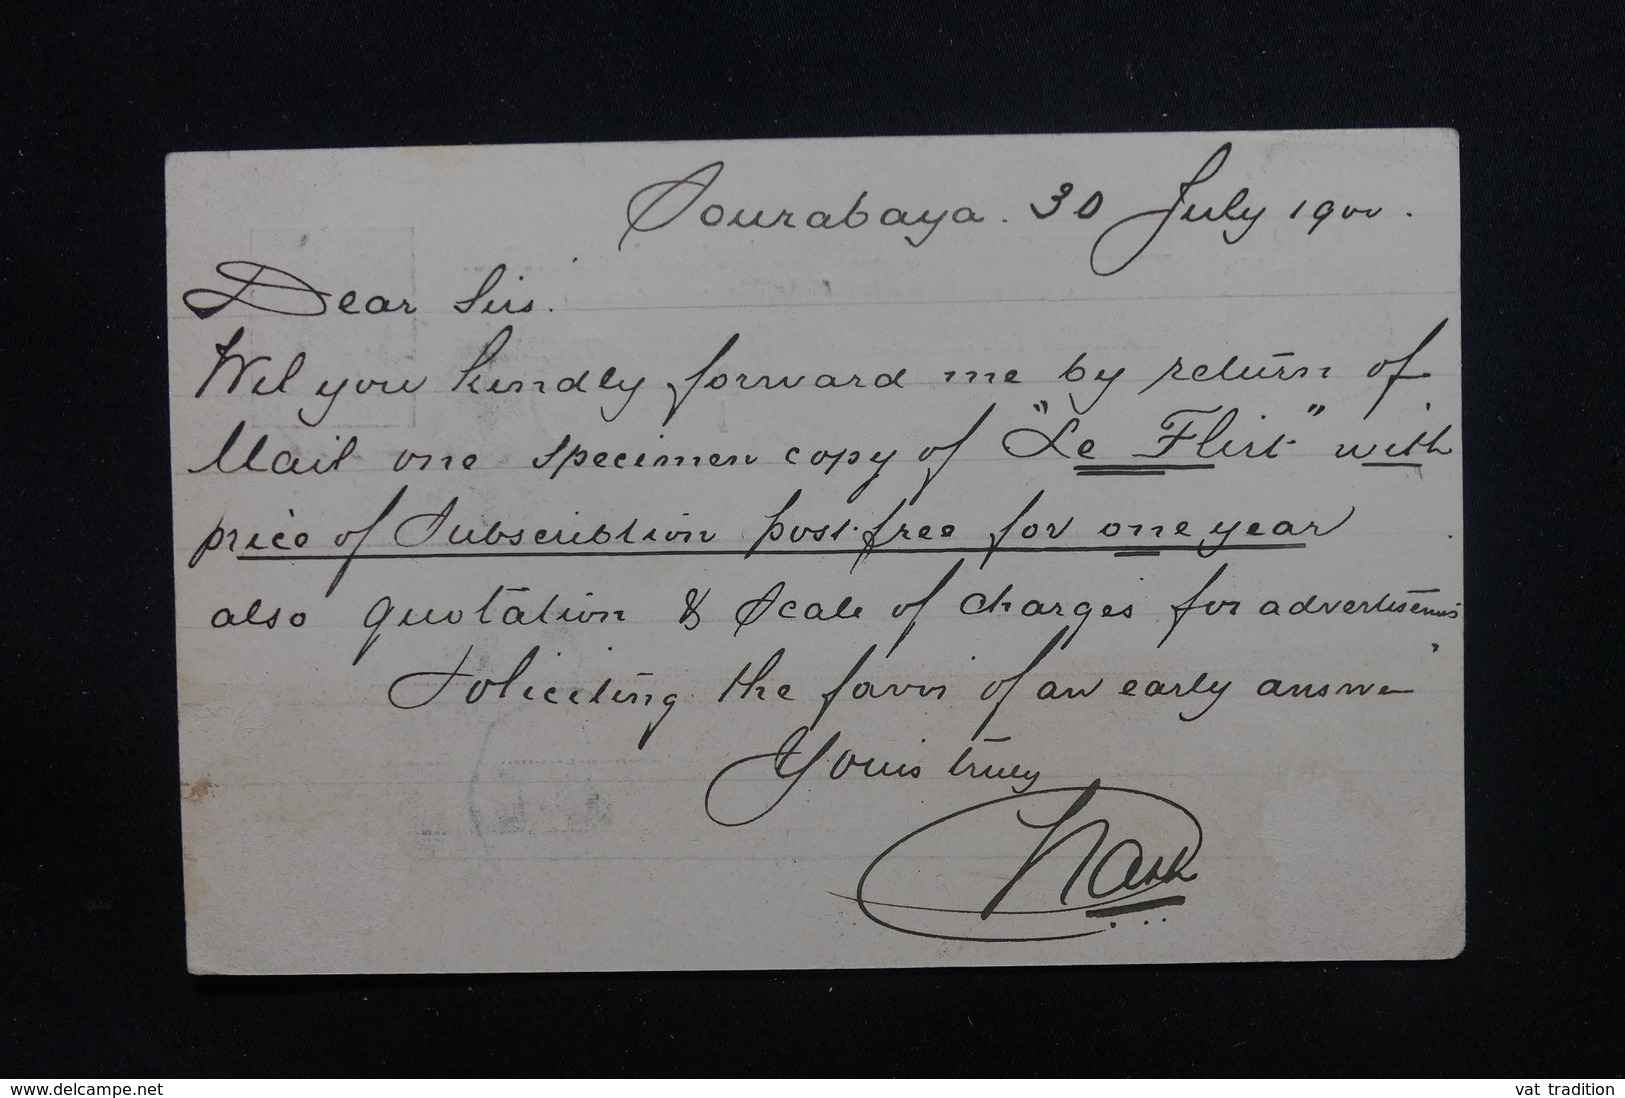 Sourabaya. 30 July 1900.
Dear Sirs.
Wil you kindly forward me by return of
Mail one specimen copy of "Le Flirt" with
price of Subscribtion post free for one year
also quotation & Scale of charges for advertisements
Soliciting the favor of an early answer
Yours truly
delcampe.net
vat_tradition